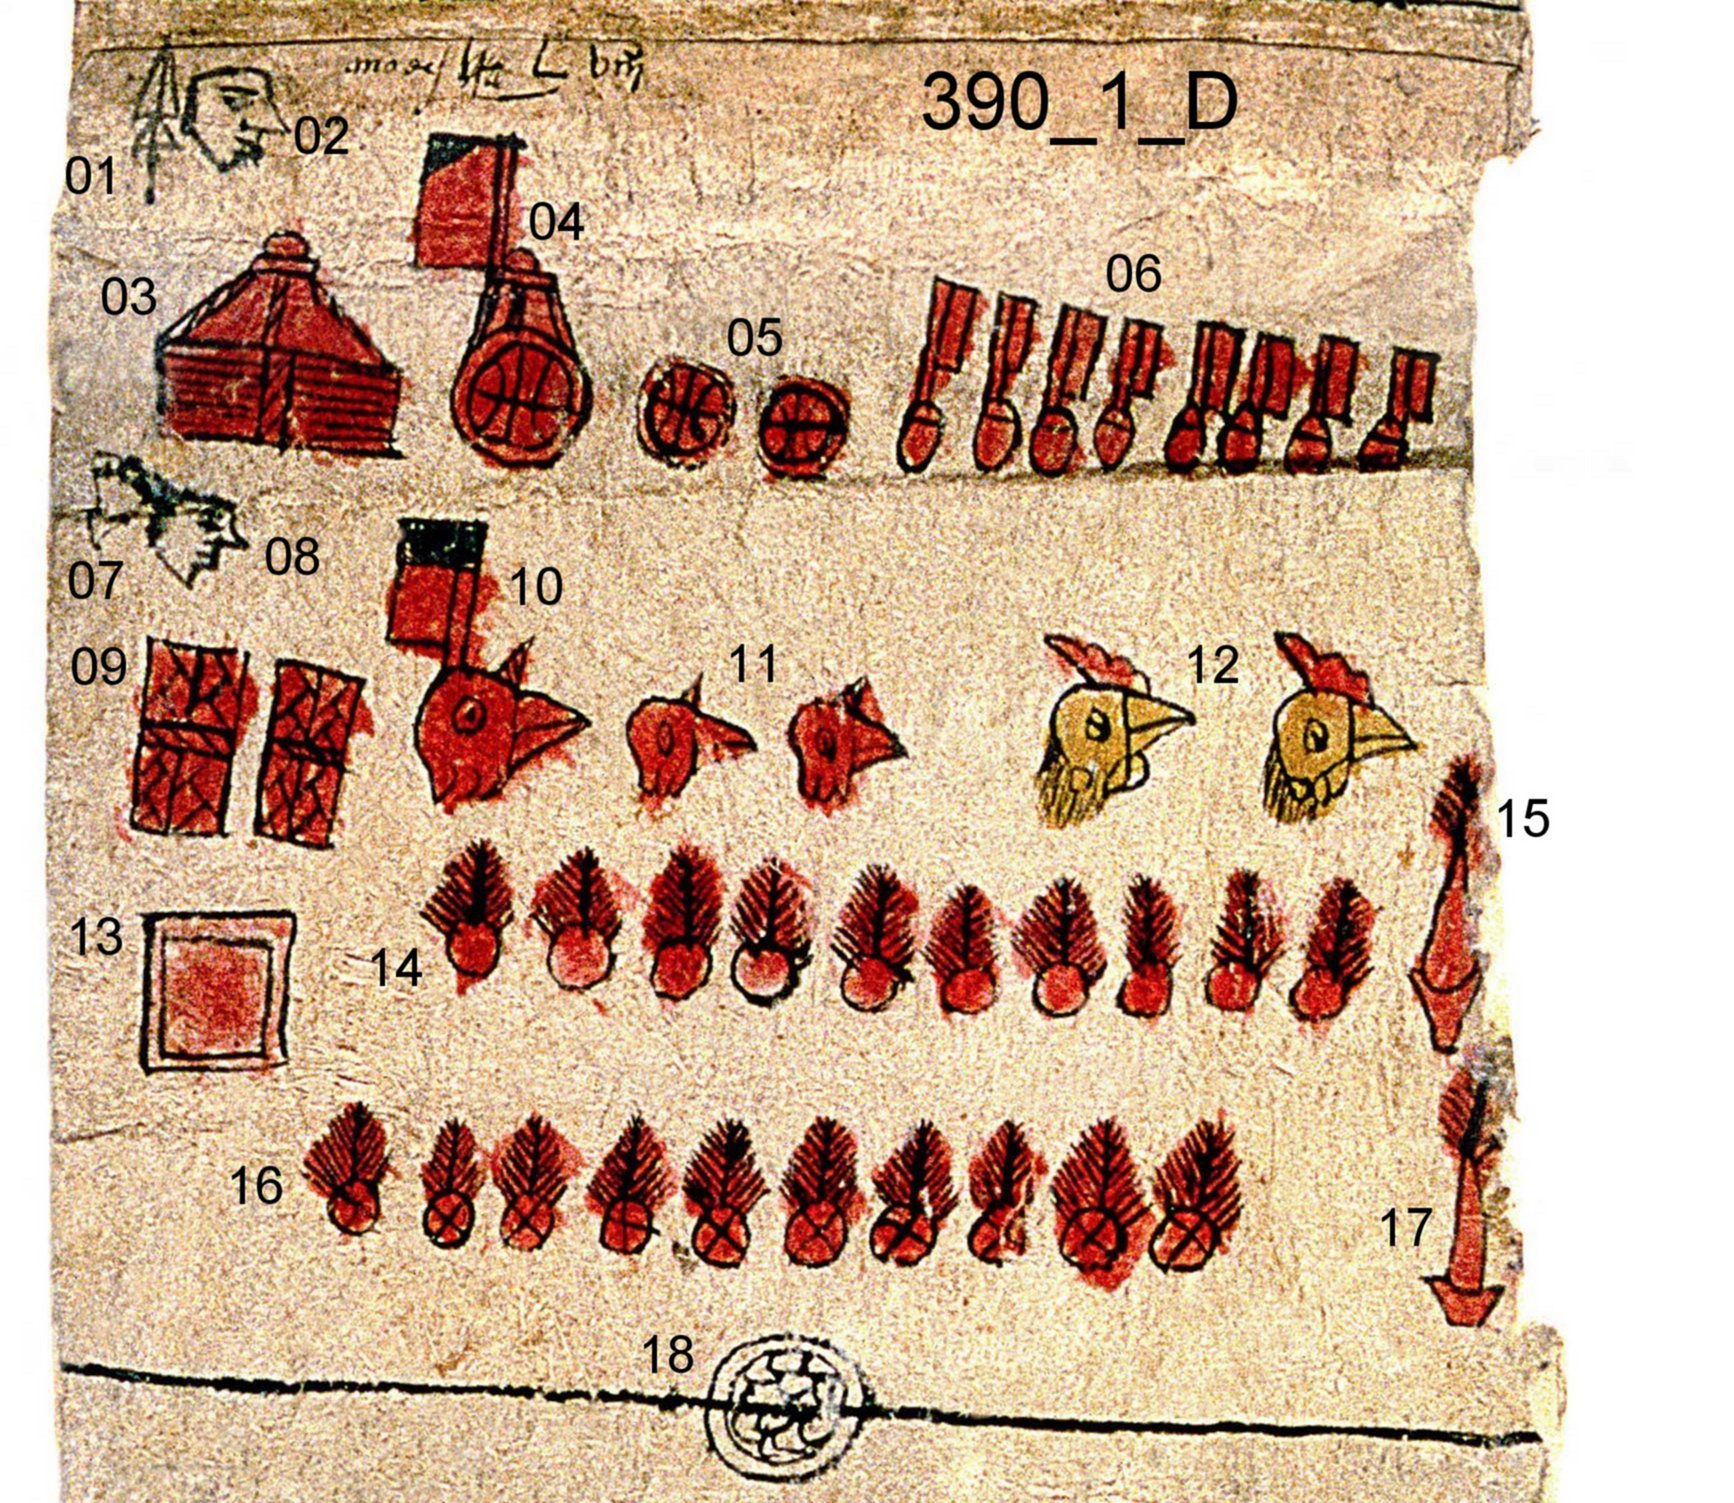 390_1_D
02
01
04
03
06
05
08
07
10
09
11
12
15
13
14
16
17
18